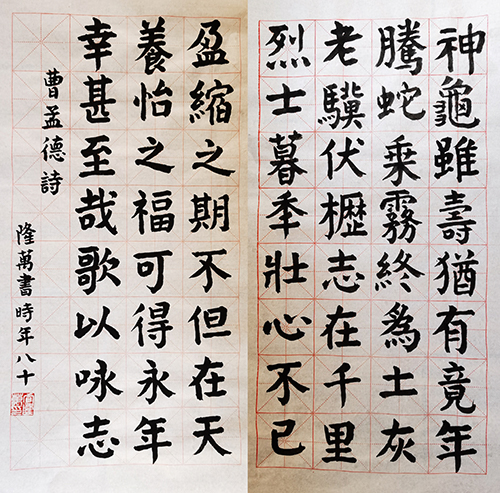 神龜雖壽猶有竟年
騰蛇乘霧終為土灰
老驥伏櫪志在千里
烈士暮年壯心不已
盈縮之期不但在天
養怡之福可得永年
幸甚至哉歌以咏志
曹孟德詩
隆萬書時年八十